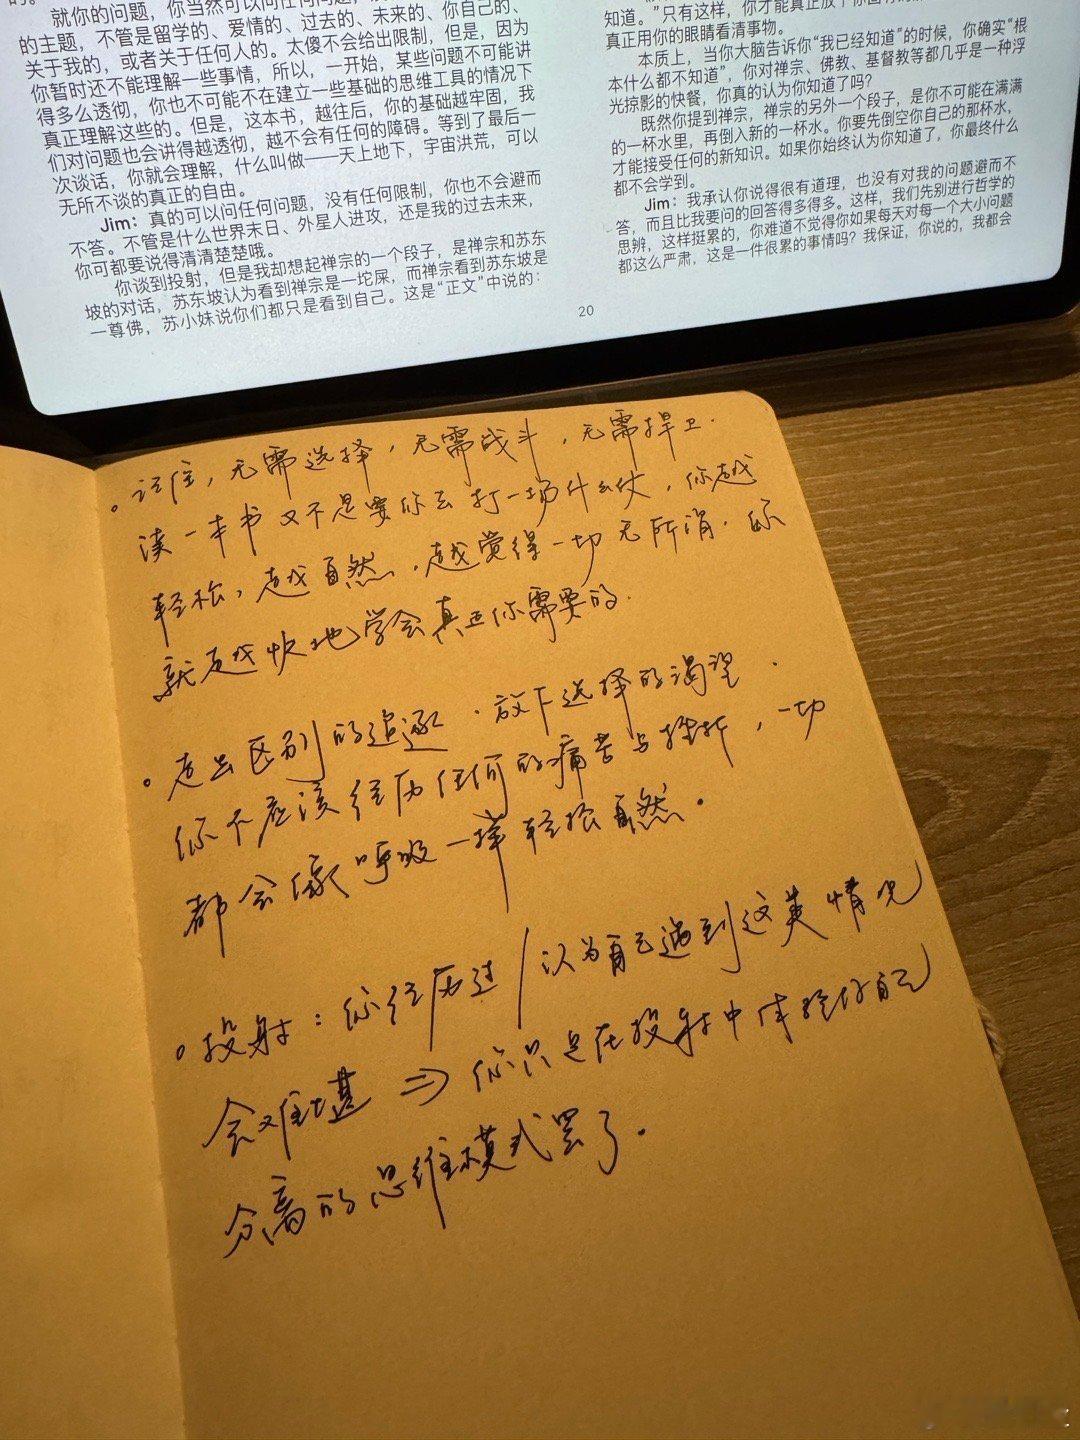 就你的问题，你当然可以问任何问题，
的主题，不管是留学的、爱情的、过去的、未来的、你自己的、
关于我的，或者关于任何人的。太傻不会给出限制，但是，因为
你暂时还不能理解一些事情，所以，一开始，某些问题不可能讲
得多么透彻，你也不可能不在建立一些基础的思维工具的情况下
真正理解这些的。但是，这本书，越往后，你的基础越牢固，我
们对问题也会讲得越透彻，越不会有任何的障碍。等到了最后一
次谈话，你就会理解，什么叫做——天上地下，宇宙洪荒，可以
无所不谈的真正的自由。
Jim：真的可以问任何问题，没有任何限制，你也不会避而
不答。不管是什么世界末日、外星人进攻，还是我的过去未来，
你可都要说得清清楚楚哦。
你谈到投射，但是我却想起禅宗的一个段子，是禅宗和苏东
坡的对话，苏东坡认为看到禅宗是一坨屎，而禅宗看到苏东坡是
一尊佛，苏小妹说你们都只是看到自己。这是“正文”中说的：
知道。”只有这样，你才能真正放下你固有的
真正用你的眼睛看清事物。
本质上，当你大脑告诉你“我已经知道”的时候，你确实“根
本什么都不知道”，你对禅宗、佛教、基督教等都几乎是一种浮
光掠影的快餐，你真的认为你知道了吗？
既然你提到禅宗，禅宗的另外一个段子，是你不可能在满满
的一杯水里，再倒入新的一杯水。你要先倒空你自己的那杯水，
才能接受任何的新知识。如果你始终认为你知道了，你最终什么
都不会学到。
Jim：我承认你说得很有道理，也没有对我的问题避而不
答，而且比我要问的回答得多得多。这样，我们先别进行哲学的
思辨，这样挺累的，你难道不觉得你如果每天对每一个大小问题
都这么严肃，这是一件很累的事情吗？我保证，你说的，我都会
20
。记住，无需选择，无需战斗，无需捍卫.
读一本书又不是要你去打一场什么仗，你越
轻松，越自然，越觉得一切无所谓.你
就越快地学会真正你需要的.
。走出区别的追逐.放下选择的渴望.
你不应该经历任何的痛苦与挫折，一切
都会像呼吸一样轻松自然.
。投射：你经历过/认为自己遇到这类情况
会难堪 ⇒ 你只是在投射中体验你自己
分离的思维模式罢了.